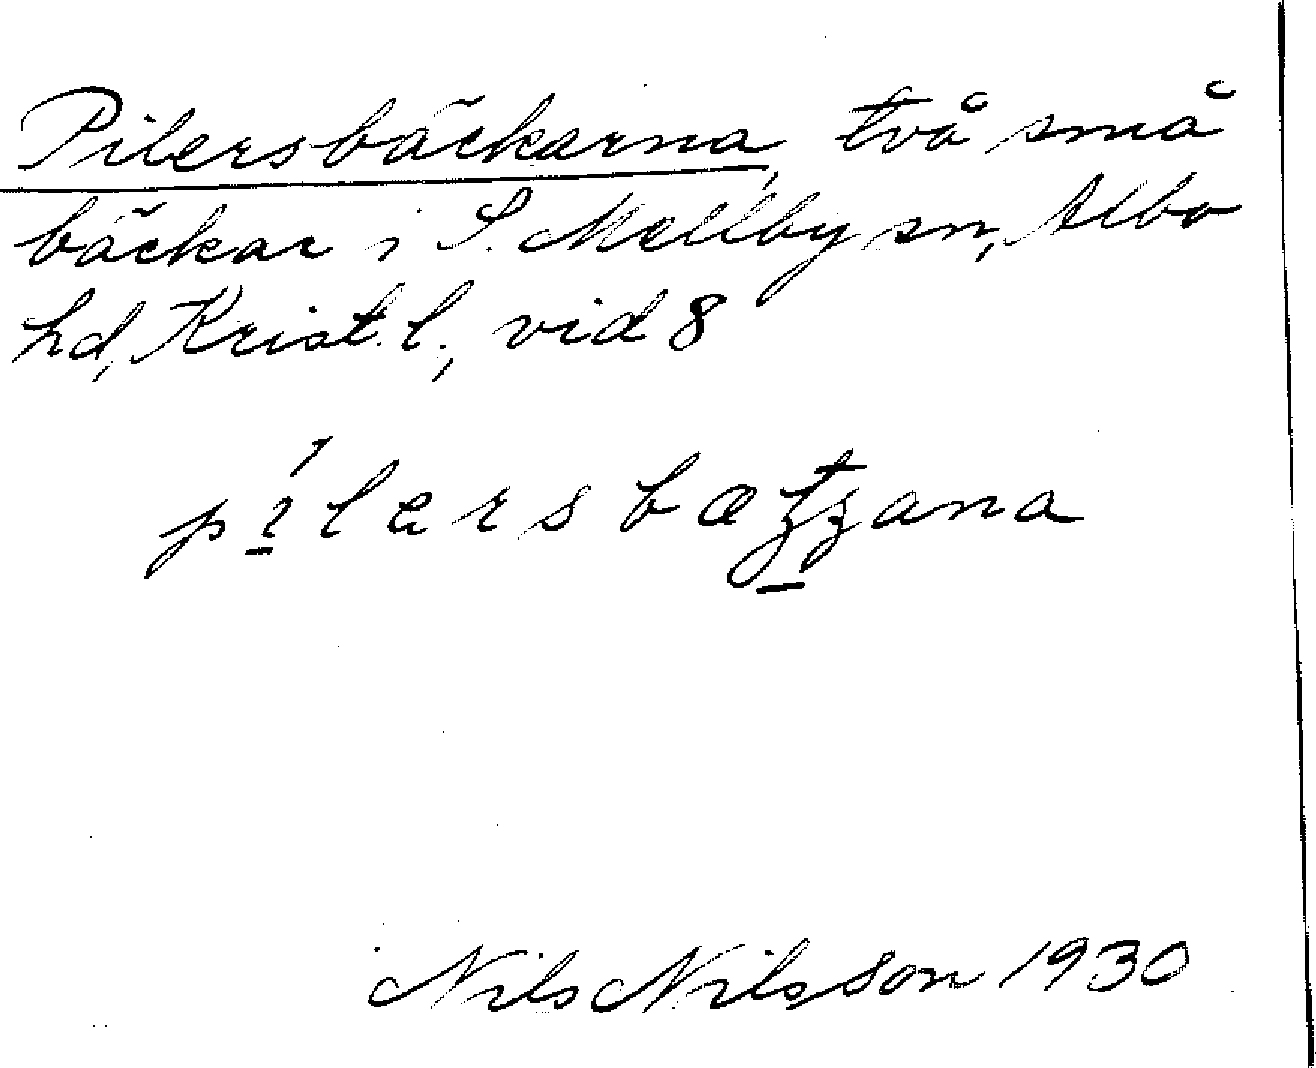 Pilersbäckarna, två små
bäckar i S. Mellby sn, Albo
hd, Krist. l., vid 8
Nils Nilsson 1930